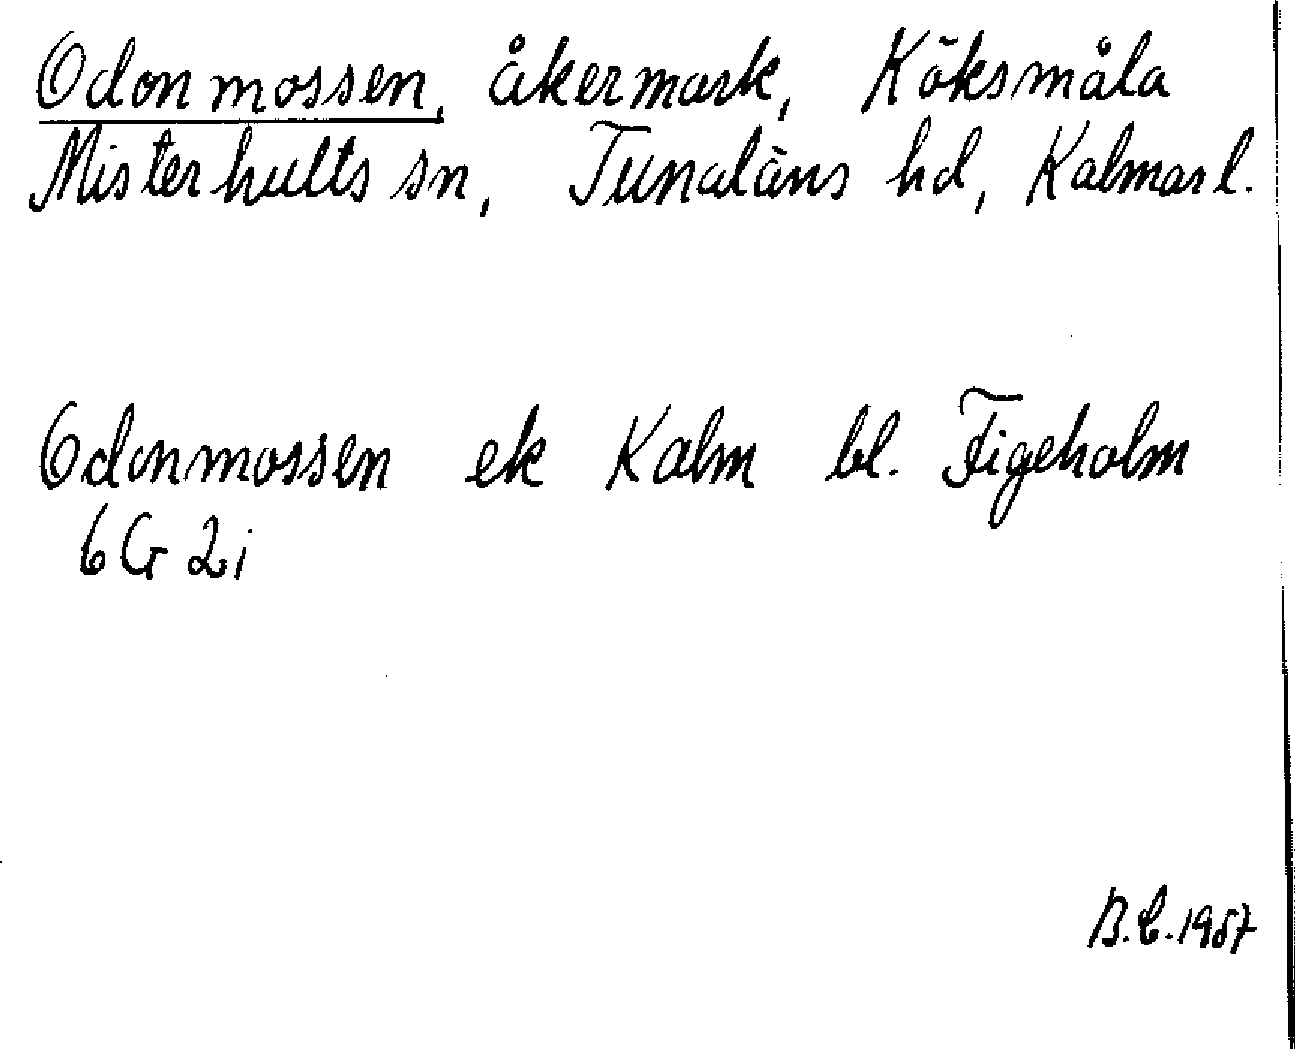 Odonmossen, åkermark, Köksmåla
Misterhults sn, Tunaläns hd, Kalmar l.
Odonmossen ek Kalm bl. Figeholm
6G 2i
B.C. 1987